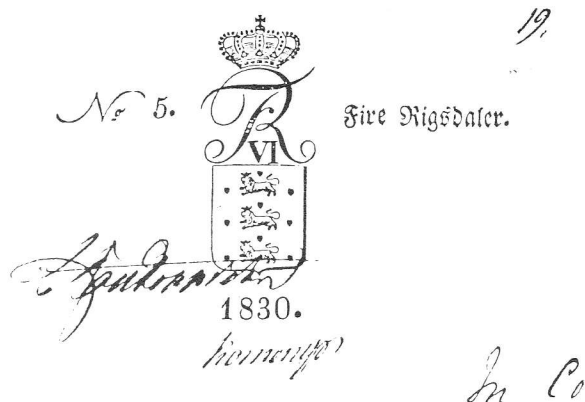 19.
No 5.
FR
VI
Fire Rigsdaler.
1830.
In Co